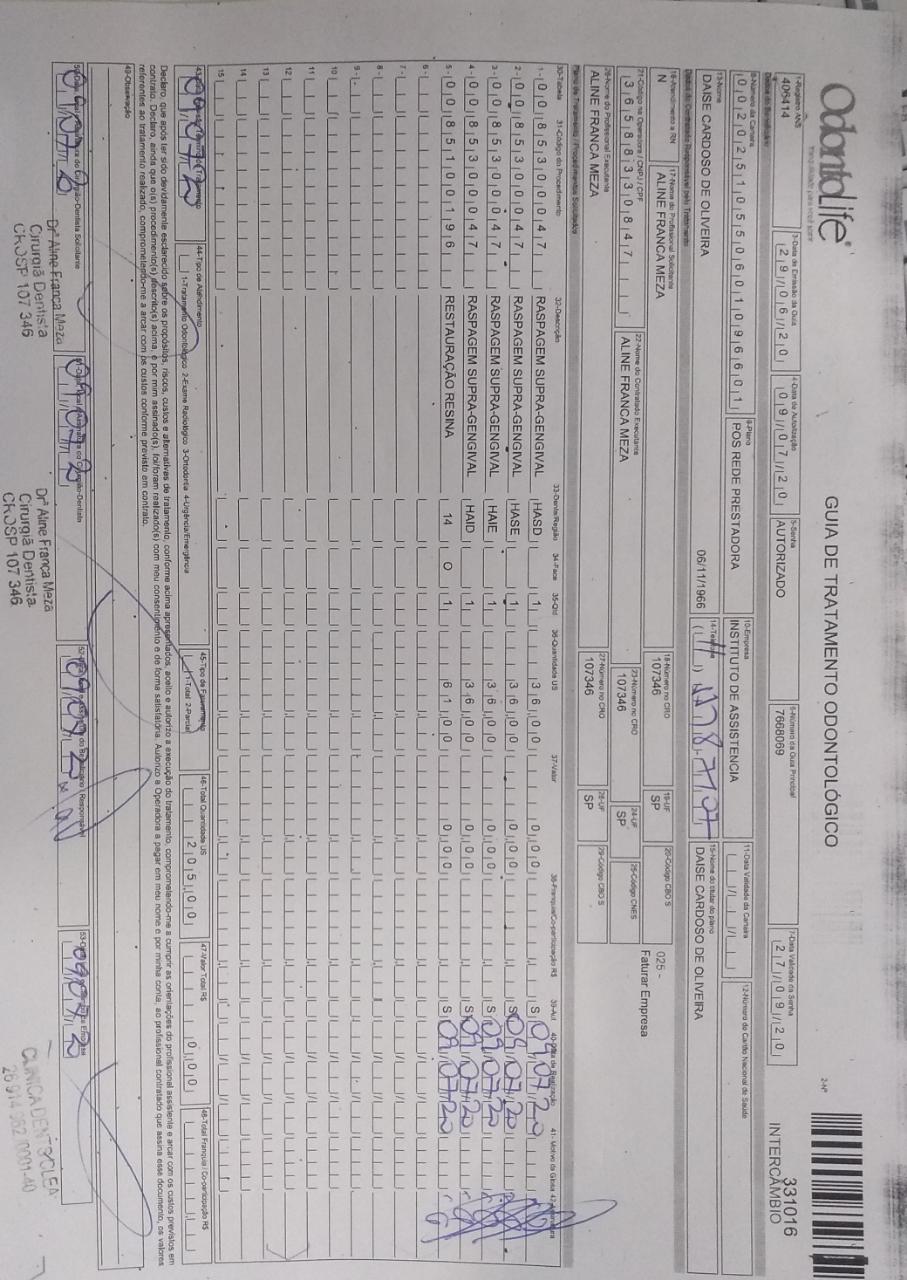 OdontoLife®
GUIA DE TRATAMENTO ODONTOLÓGICO
2-Nº
331016
INTERCÂMBIO
1-Registro ANS
406414
3-Data de Emissão da Guia
29/06/20
4-Data de Autorização
09/07/20
5-Senha
AUTORIZADO
6-Número da Guia Principal
7668069
7-Data Validade da Senha
27/09/20
8-Número da Carteira
00202510550601096601
9-Plano
POS REDE PRESTADORA
10-Empresa
INSTITUTO DE ASSISTENCIA
11-Data Validade da Carteira
12-Número do Cartão Nacional de Saúde
13-Nome
DAISE CARDOSO DE OLIVEIRA
06/11/1966
14-Telefone
15-Nome do titular do plano
DAISE CARDOSO DE OLIVEIRA
Dados do Contratado Responsável pelo Tratamento
16-Atendimento a RN
N
17-Nome do Profissional Solicitante
ALINE FRANCA MEZA
18-Número no CRO
107346
19-UF
SP
20-Código CBO S
025 -
Faturar Empresa
21-Código na Operadora / CNPJ / CPF
36588330847
22-Nome do Contratado Executante
ALINE FRANCA MEZA
23-Número no CRO
107346
24-UF
SP
25-Código CNES
26-Nome do Profissional Executante
ALINE FRANCA MEZA
27-Número no CRO
107346
28-UF
SP
29-Código CBO S
Plano de Tratamento / Procedimentos Solicitados
30-Tabela 31-Código do Procedimento 32-Descrição 33-Dente/Região 34-Face 35-Qtd 36-Quantidade US 37-Valor 38-Franquia/Co-participação R$ 39-Aut 40-Data de Realização 41-Motivo da Glosa 42-Assinatura
1- 00 85300047 RASPAGEM SUPRA-GENGIVAL HASD 1 36,00 0,00 S 09/07/20
2- 00 85300047 RASPAGEM SUPRA-GENGIVAL HASE 1 36,00 0,00 S 09/07/20
3- 00 85300047 RASPAGEM SUPRA-GENGIVAL HAIE 1 36,00 0,00 S 09/07/20
4- 00 85300047 RASPAGEM SUPRA-GENGIVAL HAID 1 36,00 0,00 S 09/07/20
5- 00 85100196 RESTAURAÇÃO RESINA 14 O 1 61,00 0,00 S 09/07/20
6-
7-
8-
9-
10
11
12
13
14
15
09/07/20
44-Tipo de Atendimento
1-Tratamento Odontológico 2-Exame Radiológico 3-Ortodontia 4-Urgência/Emergência
45-Tipo de Faturamento
1-Total 2-Parcial
46-Total Quantidade US
205,00
47-Valor Total R$
0,00
48-Total Franquia / Co-participação R$
Declaro, que após ter sido devidamente esclarecido sobre os propósitos, riscos, custos e alternativas de tratamento, conforme acima apresentados, aceito e autorizo a execução do tratamento, comprometendo-me a cumprir as orientações do profissional assistente e arcar com os custos previstos em
contrato. Declaro, ainda que o(s) procedimento(s) descrito(s) acima, e por mim assinado(s), foi/foram realizado(s) com meu consentimento e de forma satisfatória. Autorizo a Operadora a pagar em meu nome e por minha conta, ao profissional contratado que assina esse documento, os valores
referentes ao tratamento realizado, comprometendo-me a arcar com os custos conforme previsto em contrato.
49-Observação
Cirurgião-Dentista Solicitante
Cirurgião-Dentista
Drª Aline França Meza
Cirurgiã Dentista
CROSP 107 346
Drª Aline França Meza
Cirurgiã Dentista
CROSP 107 346